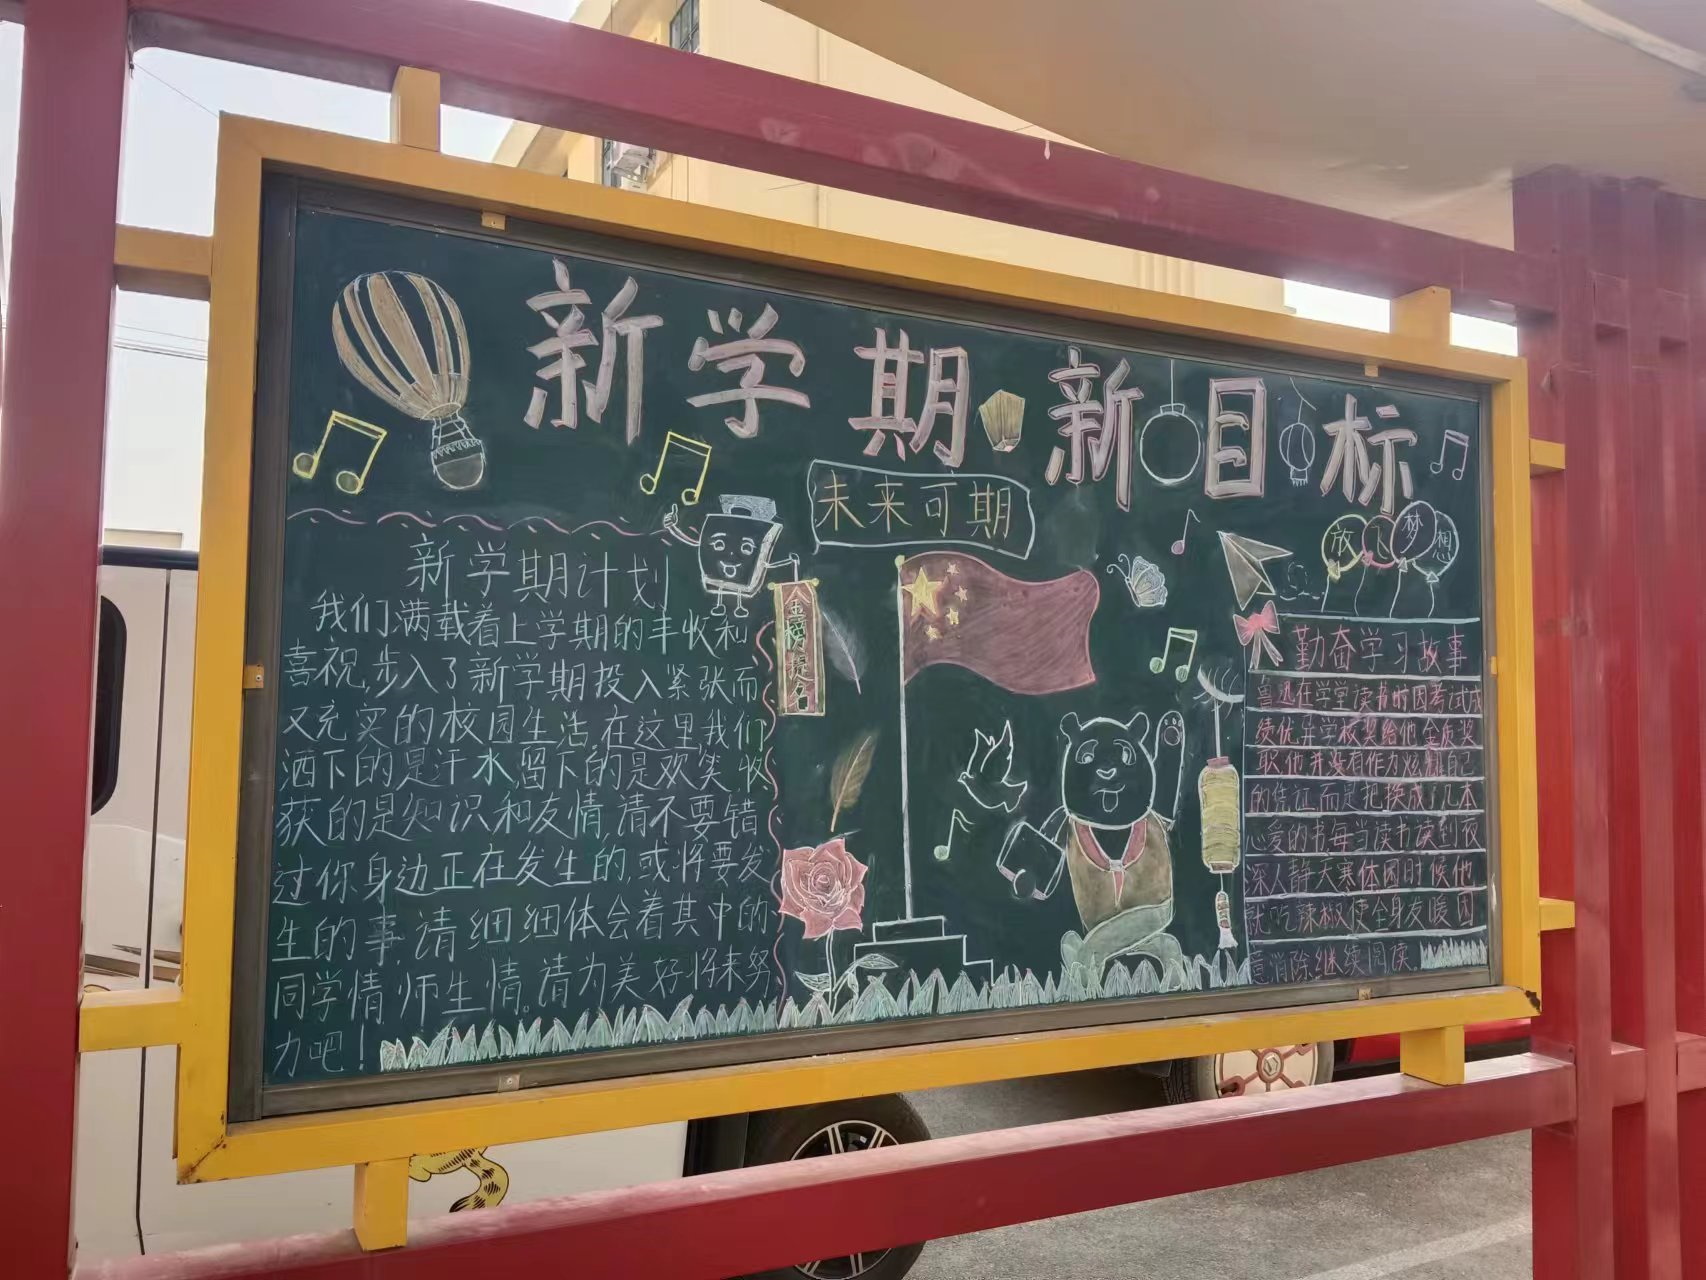 新学期新目标
未来可期
放飞梦想
新学期计划
我们满载着上学期的丰收和
喜祝,步入了新学期投入紧张而
又充实的校园生活,在这里我们
洒下的是汗水,留下的是欢笑,收
获的是知识和友情,请不要错
过你身边正在发生的,或将要发
生的事,请细细体会着其中的
同学情,师生情。请为美好将来努
力吧!
金榜提名
勤奋学习故事
鲁迅在学堂读书时因考试成
绩优异学校奖给他金质奖
取他并没有作为炫耀自己
的凭证而是把换成了几本
心爱的书每当读书读到夜
深人静天寒体困时候他
就吃辣椒使全身发暖困
意消除继续阅读。